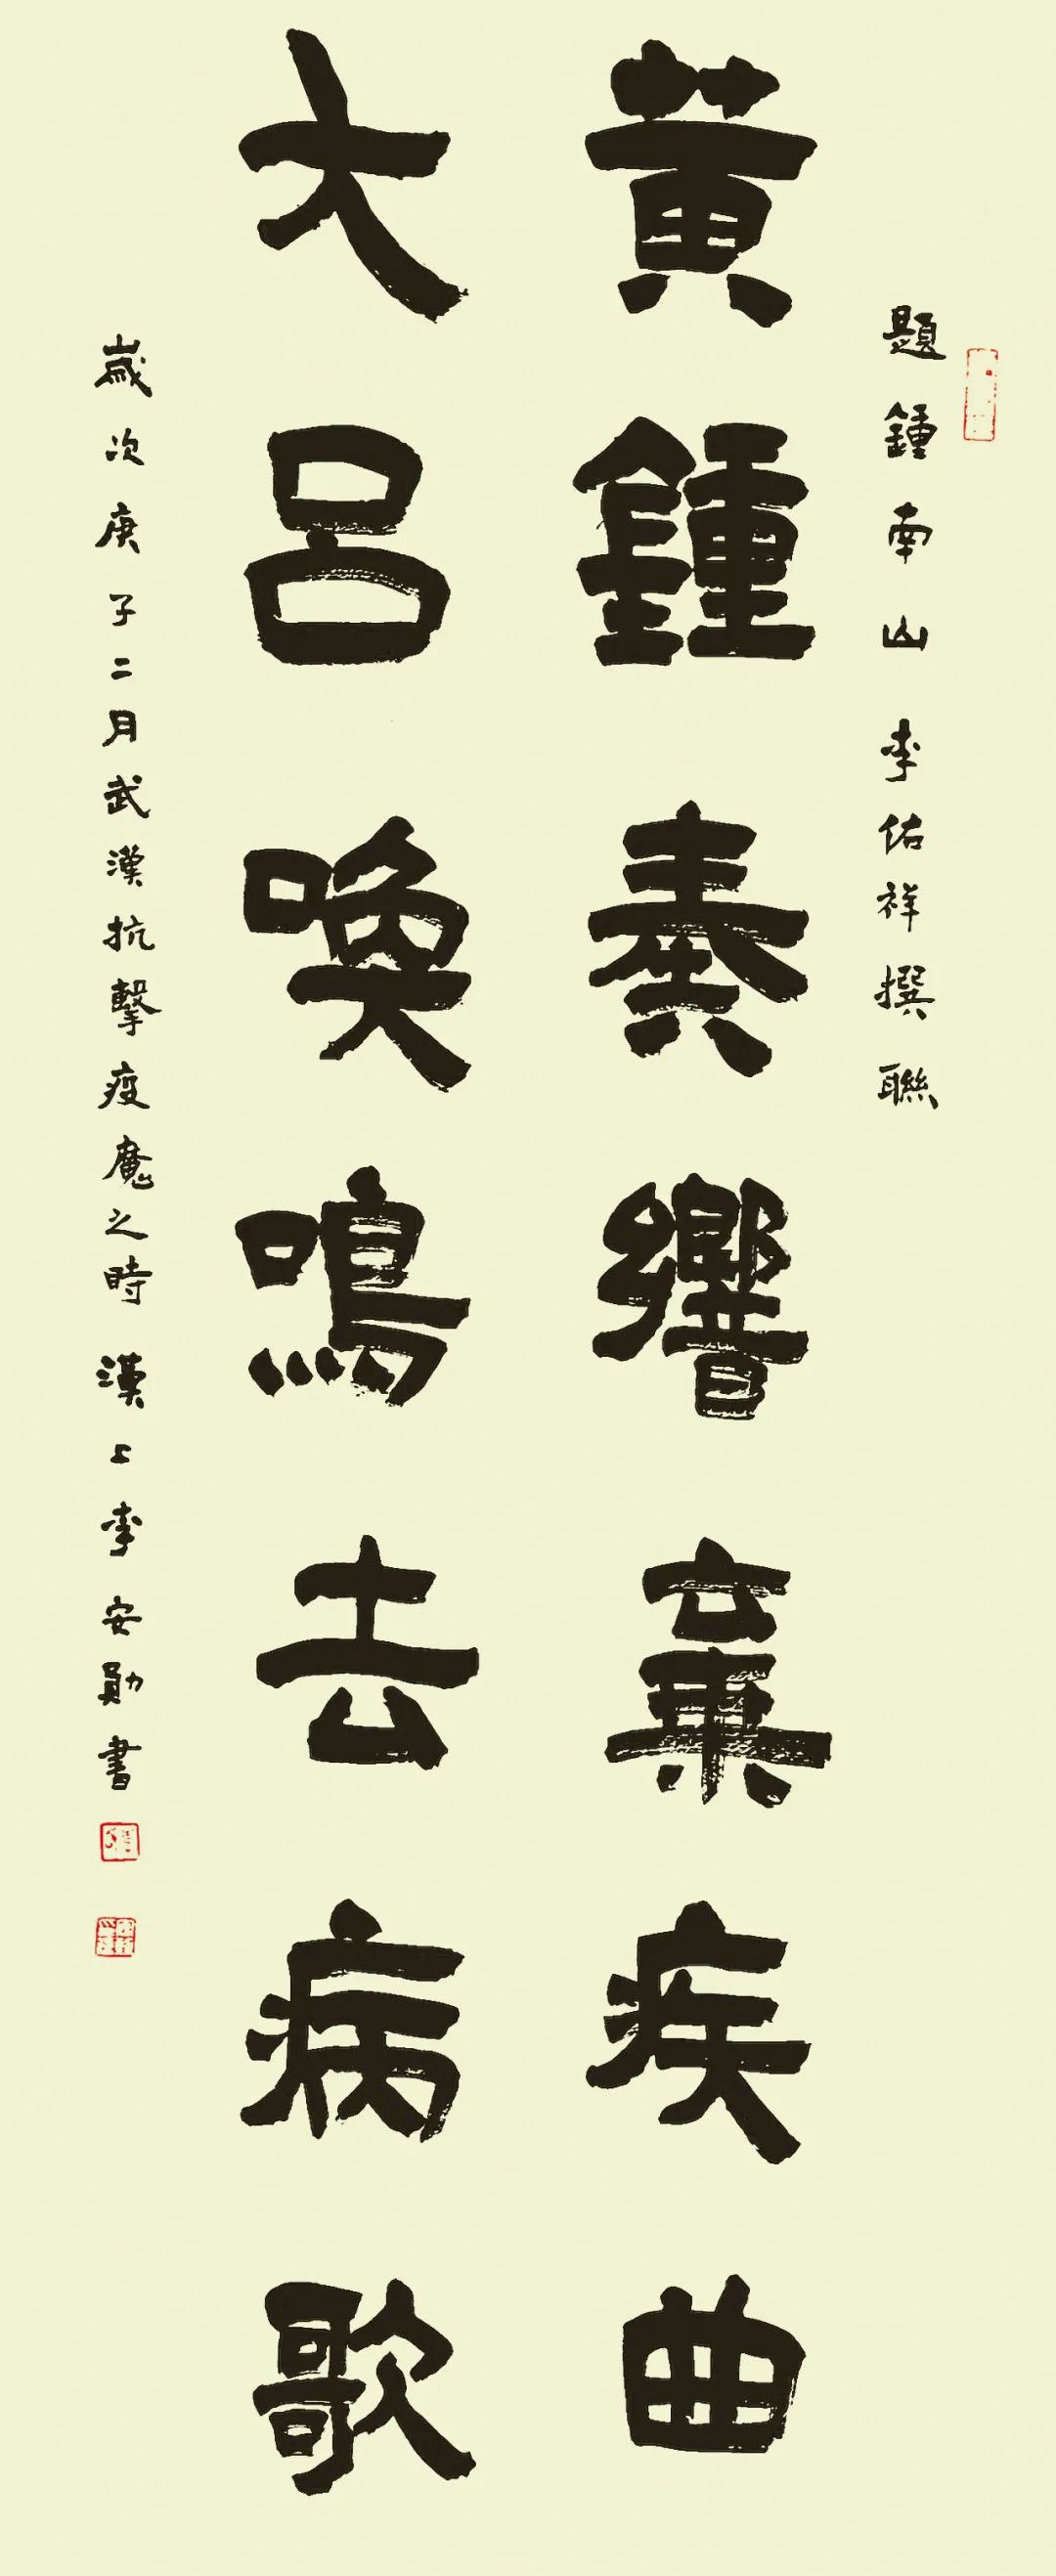 題鍾南山 李佑祥撰聯
黃鍾奏響棄疾曲
大呂喚鳴去病歌
歲次庚子二月武漢抗擊疫魔之時 漢上李安勛書